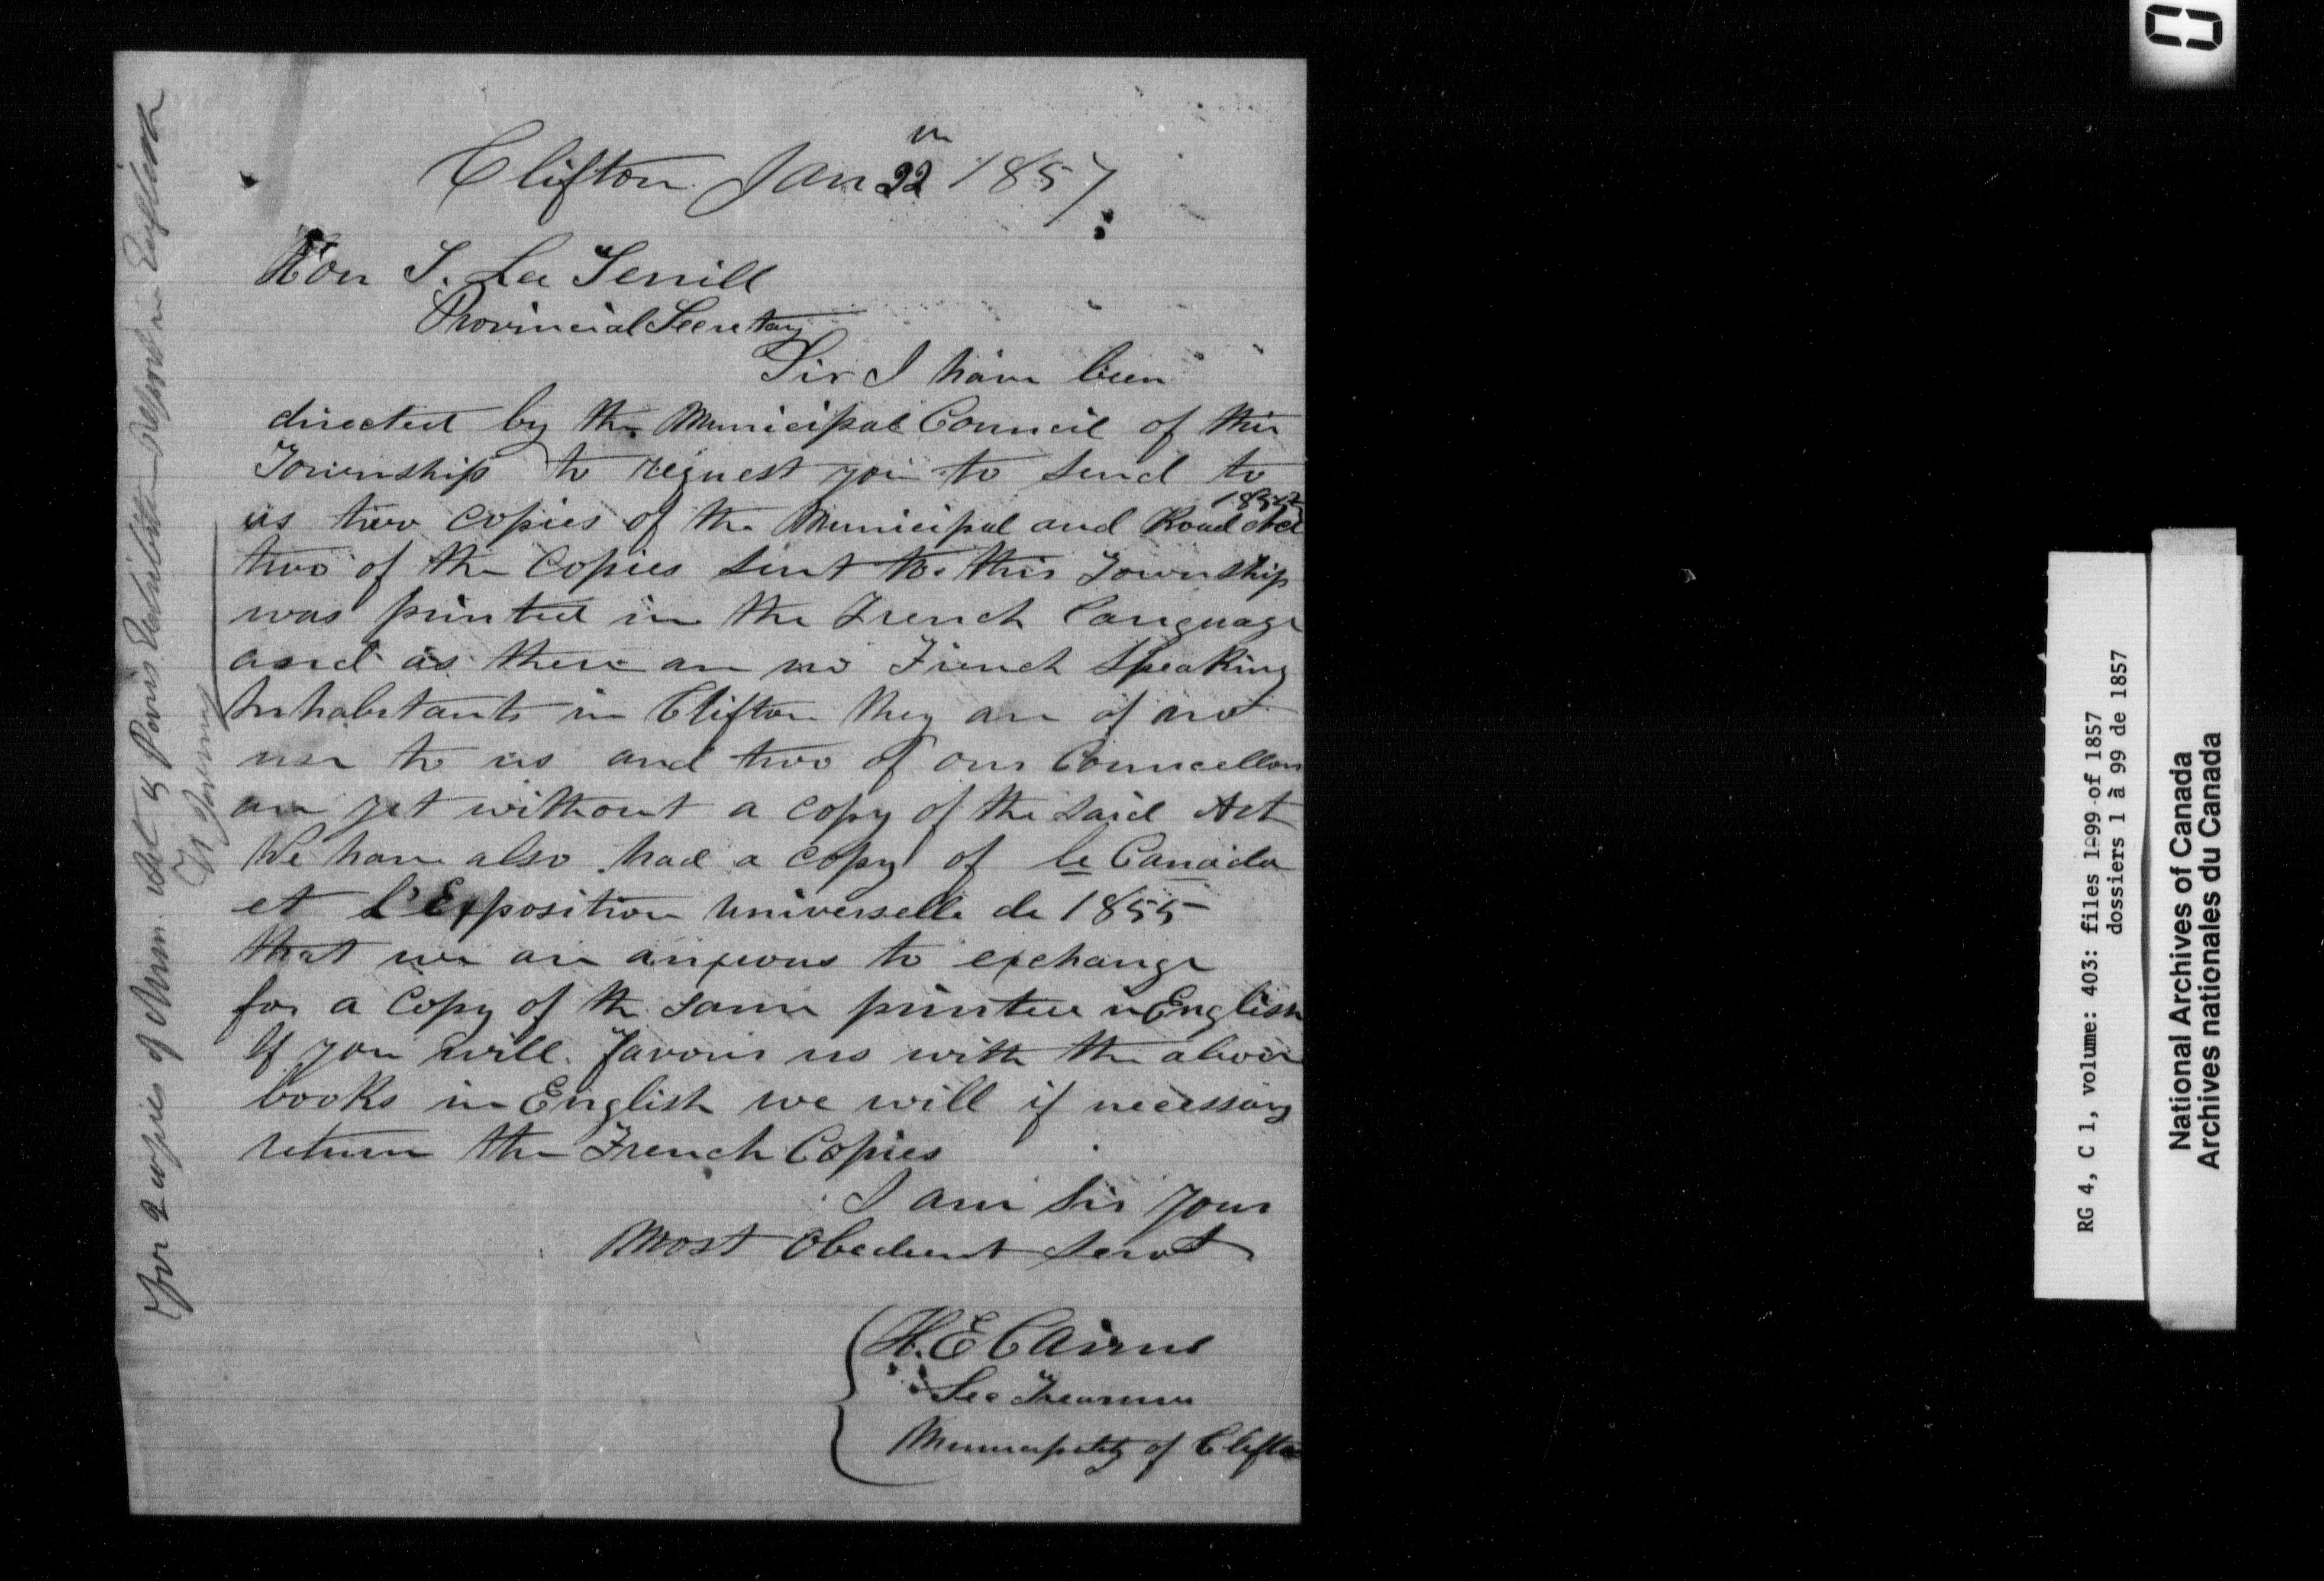 Clifton Jan 22 1857
Hon T. Lee Terrill
Provincial Secretary
Sir I have been
directed by the Municipal Council of this
Township to request you to send to
us two copies of the Municipal and Road Act
two of the Copies sent to this Township
was printed in the French Language
and as there are no French Speaking
Inhabitants in Clifton they are of no
use to us and two of our Councellors
are yet without a copy of the said Act
We have also had a copy of le Canada
et L'Exposition Universelle de 1855
that we are anxious to exchange
for a Copy of the same printed in English
If you will favour us with the above
books in English we will if necessary
return the French Copies
I am Sir your
Most Obedient Servt
H. E Cairns
Sec Treasurer
Municipality of Clifton
For 2 copies of Mun. Act & Paris Exhibition in English
RG 4, C 1, volume: 403: files 1-99 of 1857
dossiers 1 à 99 de 1857
National Archives of Canada
Archives nationales du Canada